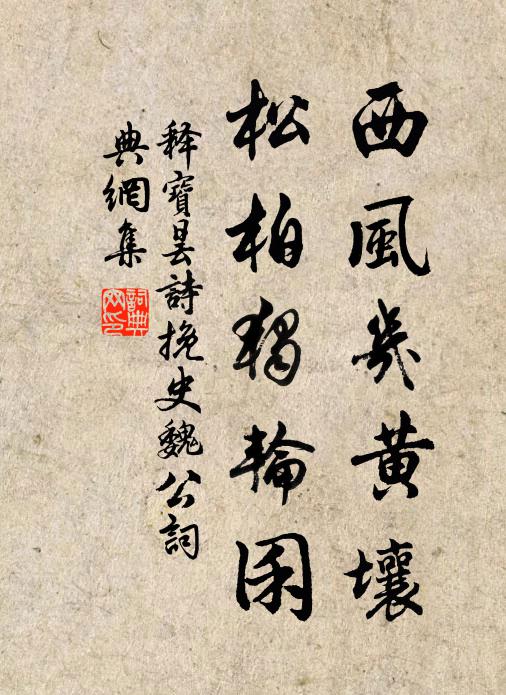 西風幾黄壤
松柏獨輪囷
释寶曇詩挽史魏公詞
典網集
詞典網印